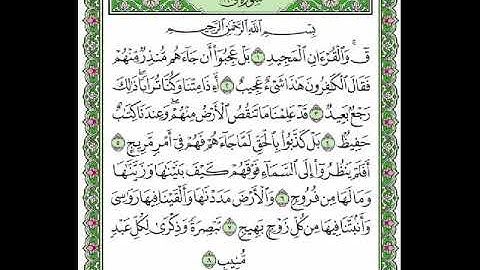 بِسْمِ اللَّهِ الرَّحْمَٰنِ الرَّحِيمِ
قٓ ۚ وَالْقُرْءَانِ الْمَجِيدِ ١ بَلْ عَجِبُوٓا۟ أَن جَآءَهُم مُّنذِرٌ مِّنْهُمْ
فَقَالَ الْكَٰفِرُونَ هَٰذَا شَىْءٌ عَجِيبٌ ٢ أَءِذَا مِتْنَا وَكُنَّا تُرَابًا ۖ ذَٰلِكَ
رَجْعٌۢ بَعِيدٌ ٣ قَدْ عَلِمْنَا مَا تَنقُصُ الْأَرْضُ مِنْهُمْ ۖ وَعِندَنَا كِتَٰبٌ
حَفِيظٌۢ ٤ بَلْ كَذَّبُوا۟ بِالْحَقِّ لَمَّا جَآءَهُمْ فَهُمْ فِىٓ أَمْرٍ مَّرِيجٍ ٥
أَفَلَمْ يَنظُرُوٓا۟ إِلَى السَّمَآءِ فَوْقَهُمْ كَيْفَ بَنَيْنَٰهَا وَزَيَّنَّٰهَا
وَمَا لَهَا مِن فُرُوجٍ ٦ وَالْأَرْضَ مَدَدْنَٰهَا وَأَلْقَيْنَا فِيهَا رَوَٰسِىَ
وَأَنۢبَتْنَا فِيهَا مِن كُلِّ زَوْجٍۭ بَهِيجٍ ٧ تَبْصِرَةً وَذِكْرَىٰ لِكُلِّ عَبْدٍ
مُّنِيبٍ ٨